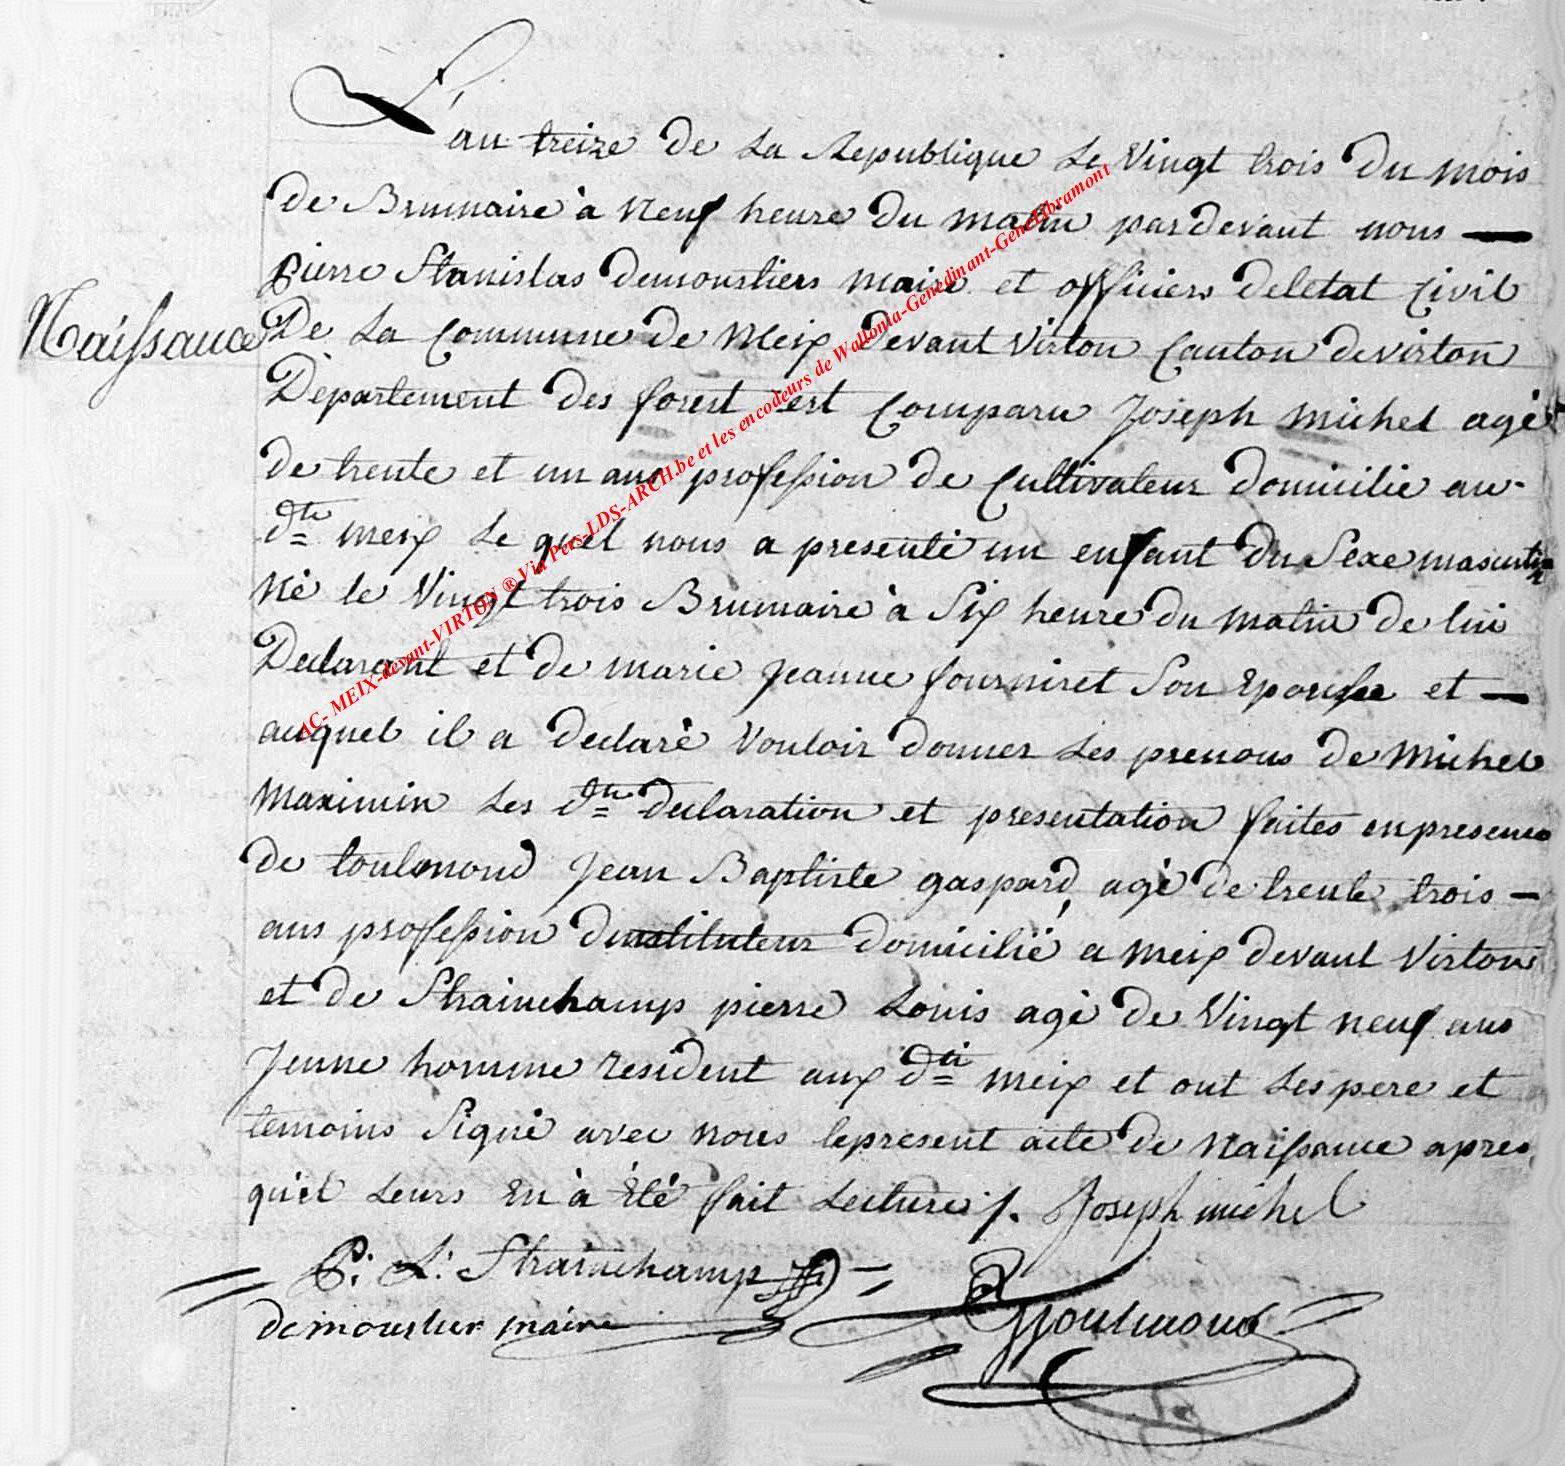 L'an treize de La Republique Le Vingt trois Du mois
De Brumaire à Neuf heure Du matin pardevant nous —
Pierre Stanislas demoustiers maire et officiers deletat Civil
Naissance
De La Commune de Meix Devant Virton Canton de virton
Departement Des forest est Comparu Joseph Michel agé
de trente et un ans profession de Cultivateur Domicilié au-
dte meix Le quel nous a presenté un enfant Du Sexe masculin
Né le Vingt trois Brumaire à Six heure du matin de lui
Declarant et de marie jeanne fourniret Son Epouse et —
auquel il a declaré Vouloir donner Les prenons de Michel
Maximin Les dte declaration et presentation faites enpresence
de toulmond Jean Baptiste gaspard, agé de trente trois —
ans profession dinstituteur domicilié a meix devant Virton
et de Strainchamp pierre Louis agé de Vingt neuf ans
Jeune homme resident aux dti meix et ont Les pere et
temoins Signé avec nous lepresent acte de Naissance apres
qu'il Leurs En à Été fait Lecture ./. Joseph michel
P: L: Strainchamp
demoustier maire
Toulmond
AC- MEIX-devant-VIRTON ® Via Pers-LDS-ARCH.be et les encodeurs de Wallonia-Genedinant-GeneLibramont